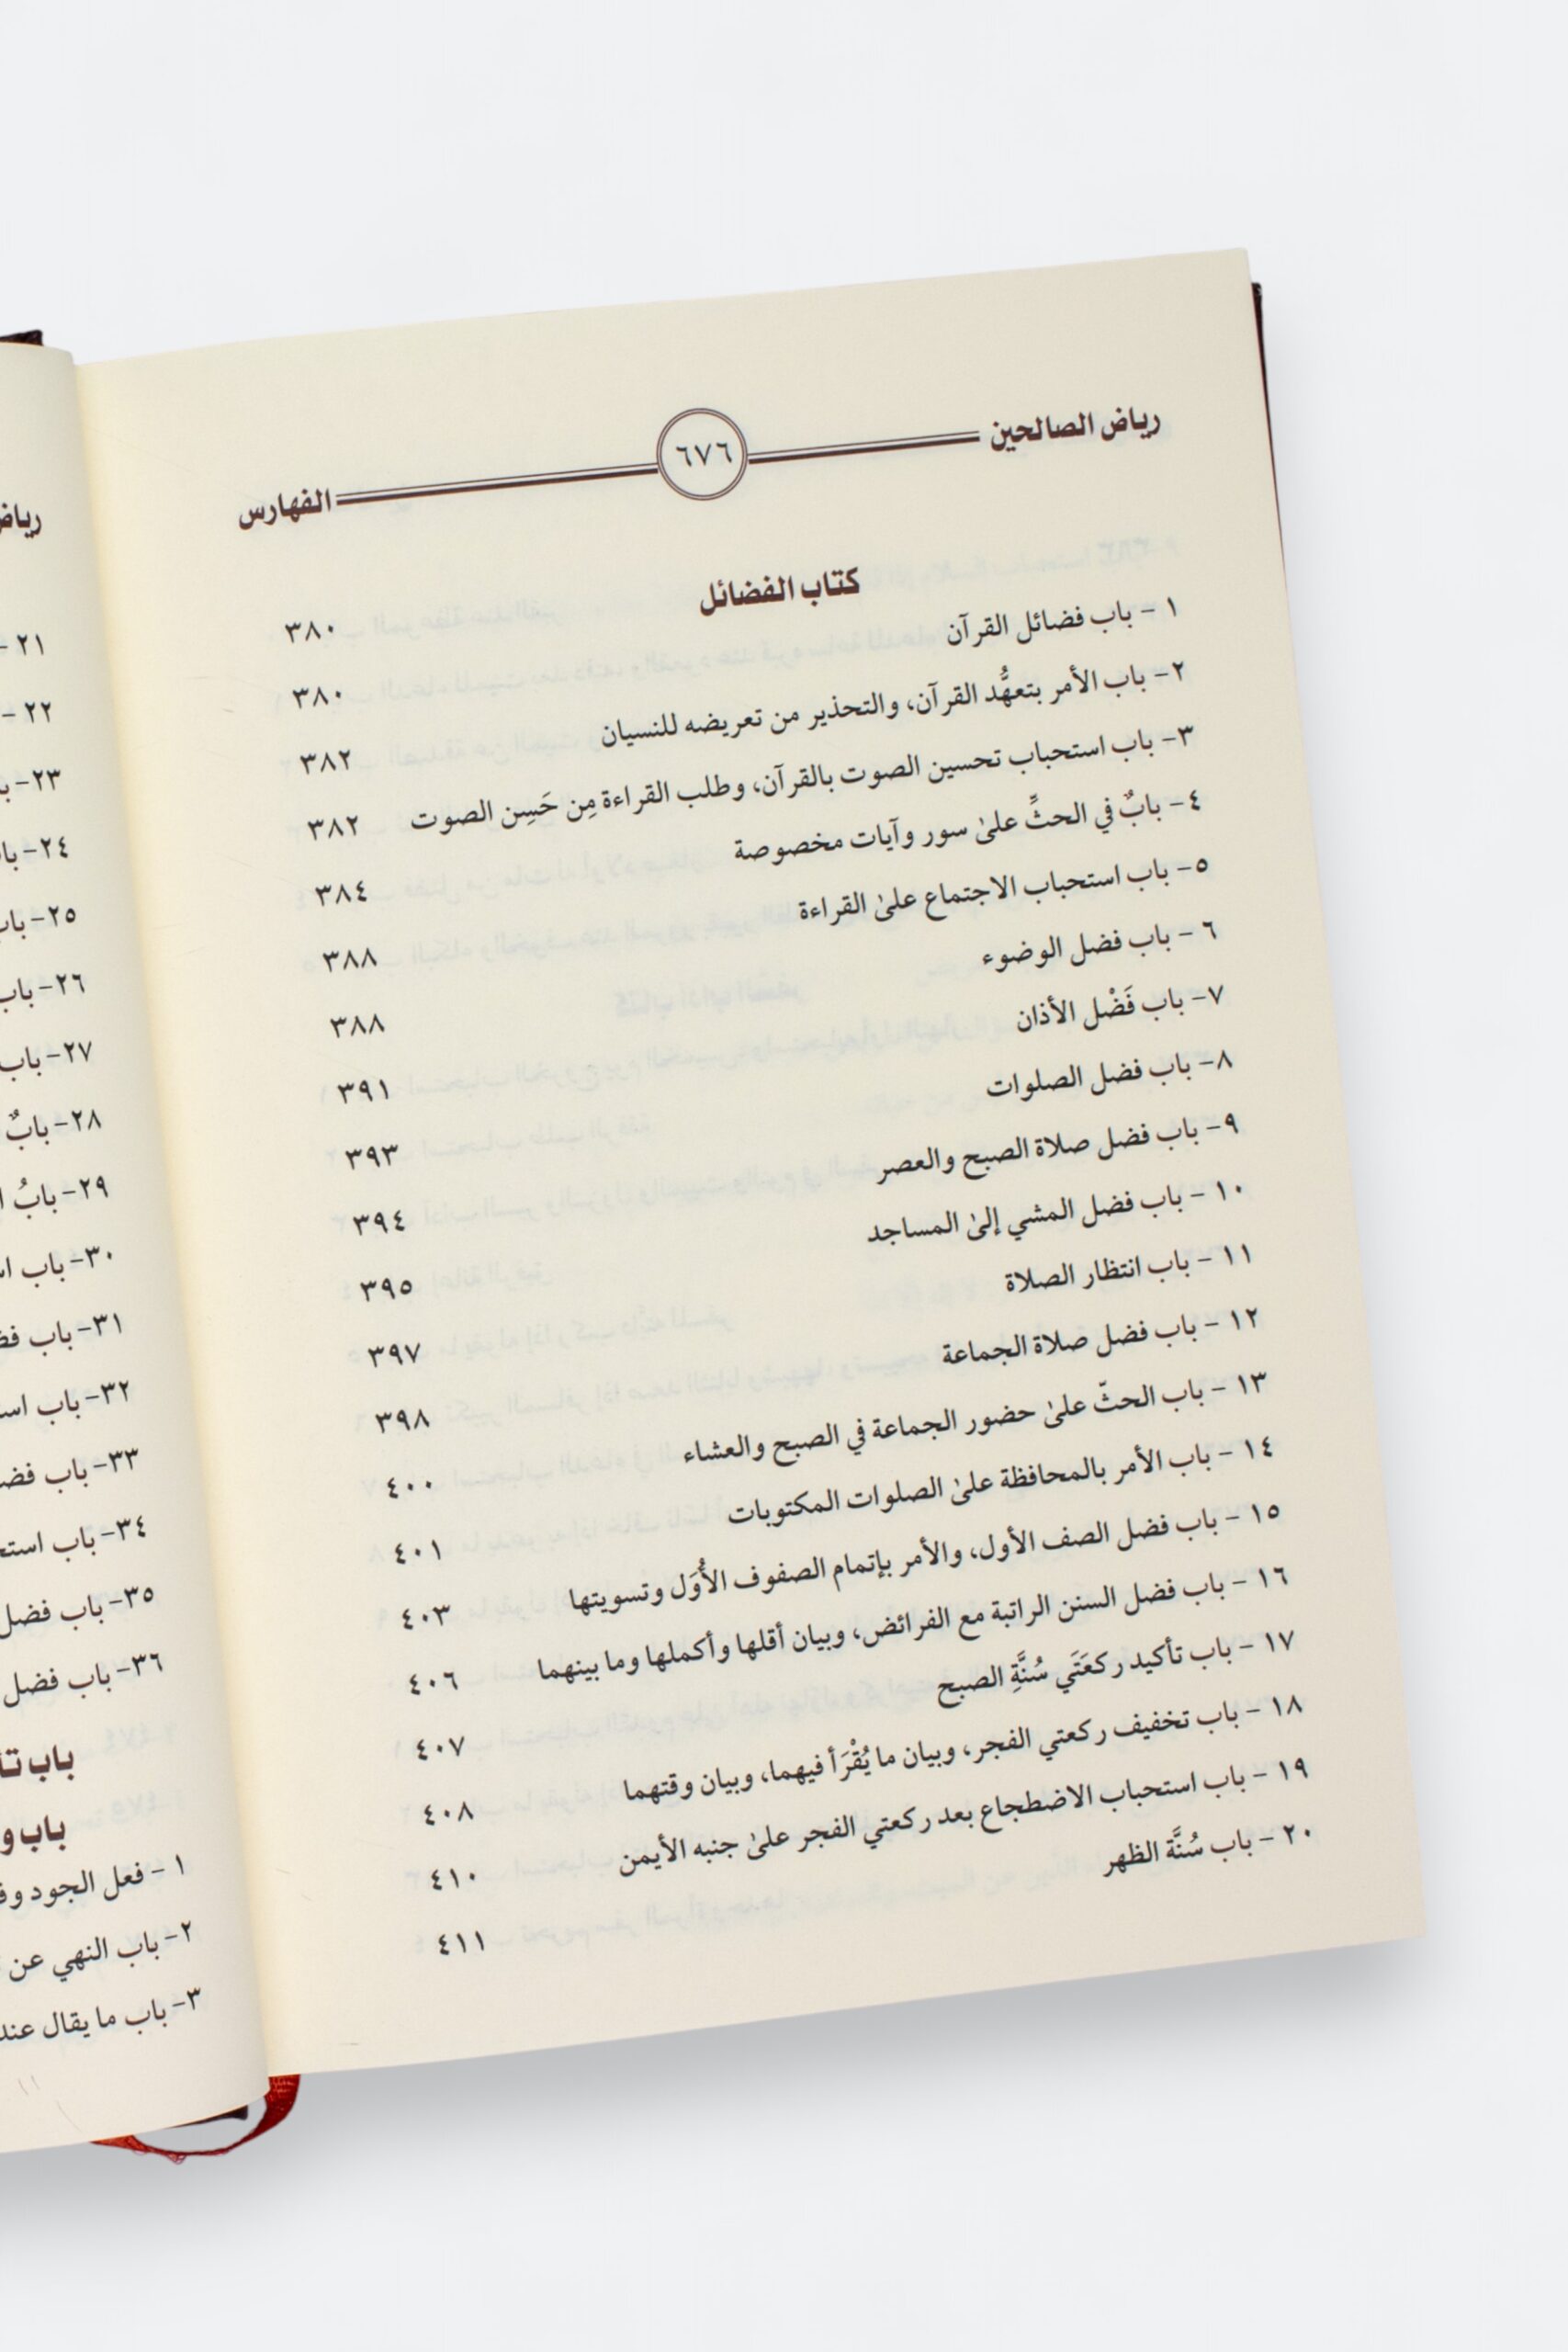 رياض الصالحين ٦٧٦ الفهارس
كتاب الفضائل ٣٨٠
١ - باب فضائل القرآن ٣٨٠
٢- باب الأمر بتعهُّد القرآن، والتحذير من تعريضه للنسيان ٣٨٢
٣- باب استحباب تحسين الصوت بالقرآن، وطلب القراءة مِن حَسِن الصوت ٣٨٢
٤- بابٌ في الحثِّ علىٰ سور وآيات مخصوصة ٣٨٤
٥- باب استحباب الاجتماع علىٰ القراءة ٣٨٨
٦ - باب فضل الوضوء ٣٨٨
٧- باب فَضْل الأذان ٣٩١
٨- باب فضل الصلوات ٣٩٣
٩- باب فضل صلاة الصبح والعصر ٣٩٤
١٠ - باب فضل المشي إلىٰ المساجد ٣٩٥
١١ - باب انتظار الصلاة ٣٩٧
١٢ - باب فضل صلاة الجماعة ٣٩٨
١٣ - باب الحثّ علىٰ حضور الجماعة في الصبح والعشاء ٤٠٠
١٤ - باب الأمر بالمحافظة علىٰ الصلوات المكتوبات ٤٠١
١٥ - باب فضل الصف الأول، والأمر بإتمام الصفوف الأُوَل وتسويتها ٤٠٣
١٦ - باب فضل السنن الراتبة مع الفرائض، وبيان أقلها وأكملها وما بينهما ٤٠٦
١٧ - باب تأكيد ركعَتَي سُنَّةِ الصبح ٤٠٧
١٨ - باب تخفيف ركعتي الفجر، وبيان ما يُقْرَأ فيهما، وبيان وقتهما ٤٠٨
١٩ - باب استحباب الاضطجاع بعد ركعتي الفجر علىٰ جنبه الأيمن ٤١٠
٢٠ - باب سُنَّة الظهر ٤١١
٢١ -
٢٢ -
٢٣-
٢٤-
٢٥- باب
٢٦- باب
٢٧- باب
٢٨- بابٌ
٢٩- بابُ
٣٠- باب
٣١- باب
٣٢- باب
٣٣- باب
٣٤- باب
٣٥- باب فضل
٣٦- باب فضل
باب
باب
١ - فعل الجود
٢- باب النهي عن
٣- باب ما يقال عند